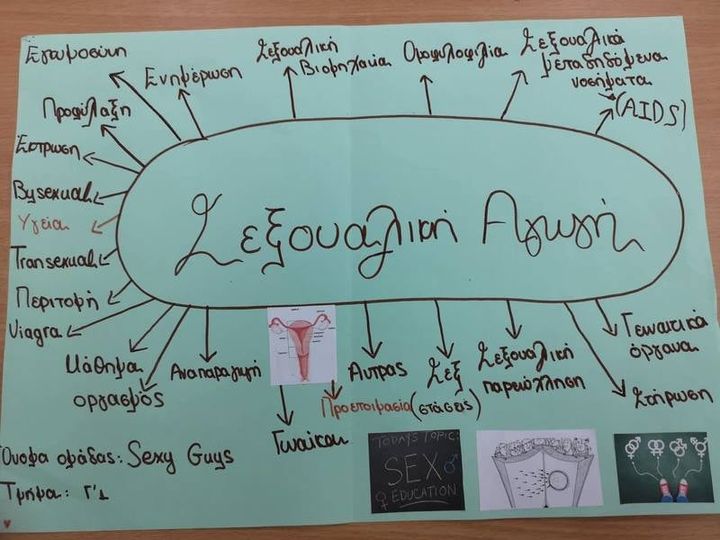 Εγκυμοσύνη
Ενημέρωση
Σεξουαλική
Βιομηχανία
Ομοφυλοφιλία
Σεξουαλικά
μεταδηδόμενα
νοσήματα
(AIDS)
Προφύλαξη
Έκτρωση
Bysexual
Υγεία
Transexual
Περιτομή
Viagra
Σεξουαλική Αγωγή
Μάθημα
οργασμός
Αναπαραγωγή
Γυναίκα
Προετοιμασία
Άντρας
Σεξ
(στάσεις)
Σεξουαλική
παρενόχληση
Γεννητικά
όργανα
Στήρωση
Όνομα ομάδας: Sexy Guys
Τμήμα: Γ'1
TODAYS TOPIC:
SEX
EDUCATION